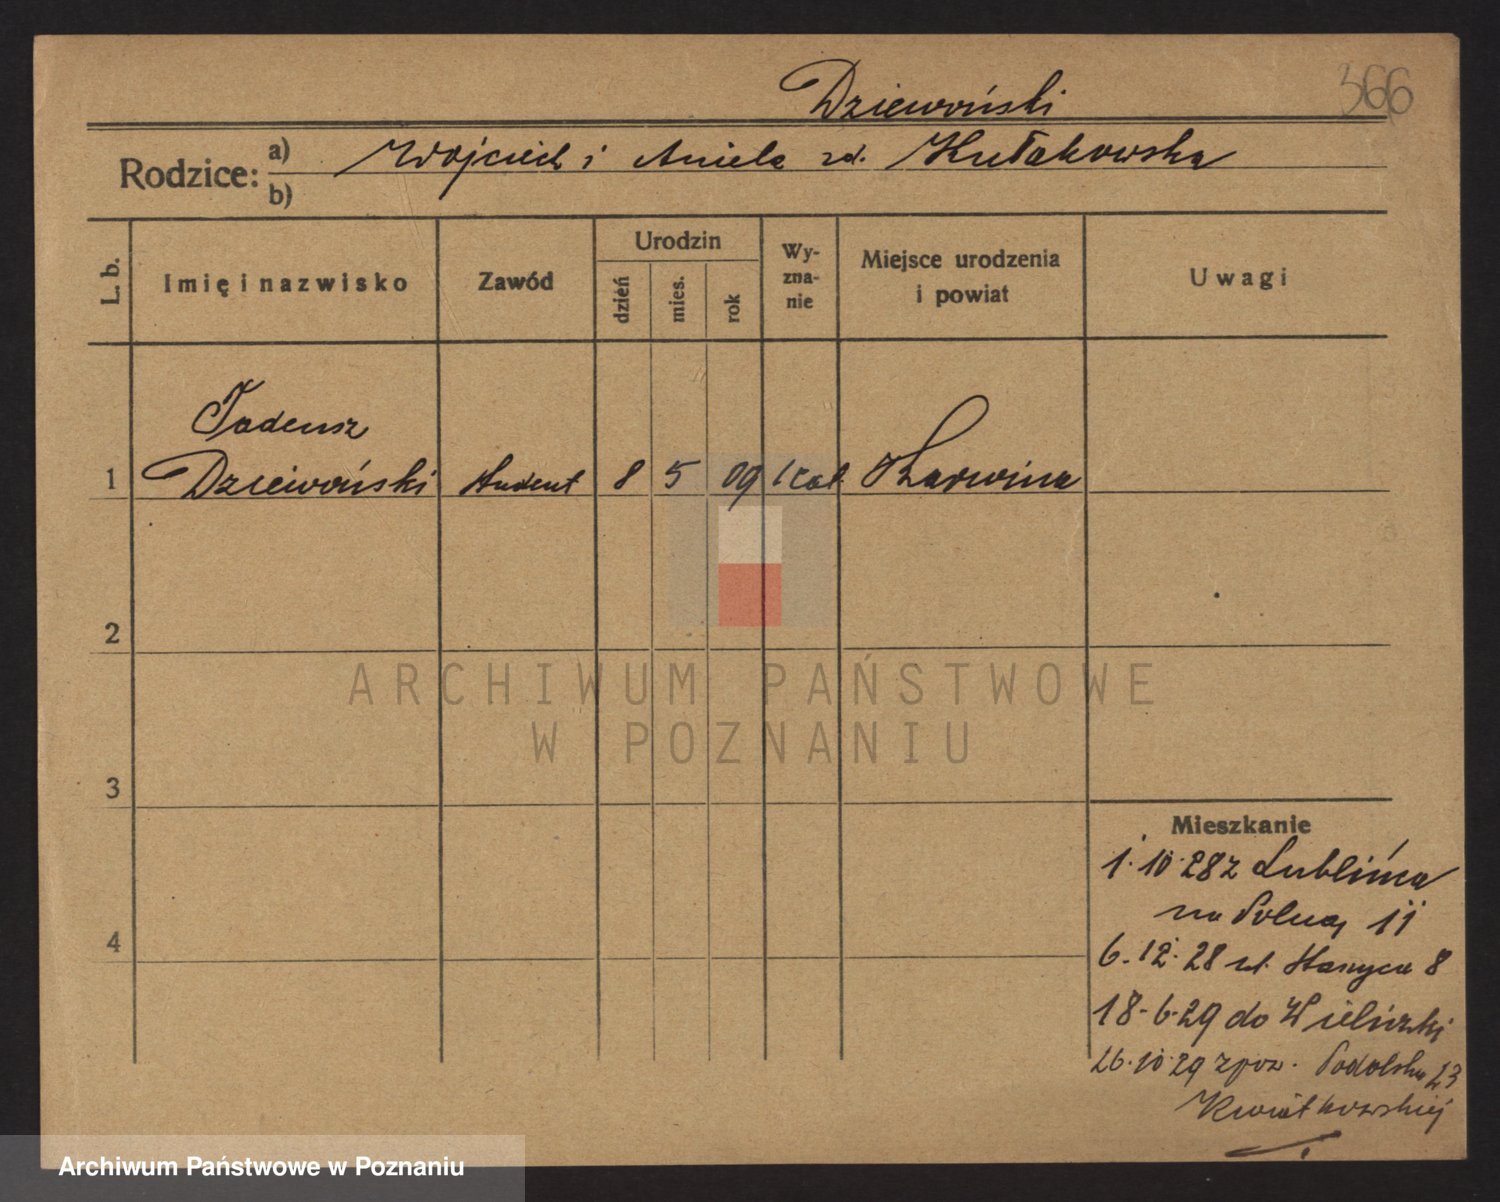 366
Dziewoński
Rodzice: a) Wojciech i Aniela zd. Kułakowska
b)
L. b. Imię i nazwisko Zawód Urodzin dzień mies. rok Wy-zna-nie Miejsce urodzenia i powiat Uwagi
Tadeusz
1 Dziewoński student 8 5 09 kat. Karwina
2
3
4
ARCHIWUM PAŃSTWOWE
W POZNANIU
Mieszkanie
1.10.28 z Lublińca
na Polną 11
6.12.28 8
18.6.29 do Wieliczki
26.10.29 z pow. Podolska 23
Kwiatkowskiej
Archiwum Państwowe w Poznaniu